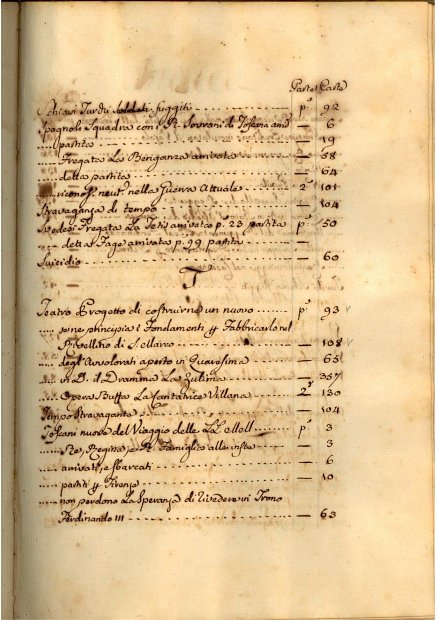 Parte Carte
Schiavi Turchi Soldati fuggiti p.ª 92
Spagnoli Squadra con i R. Sovrani di Toscana — 6
partita — 19
Fregata La arrivata — 58
detta partita — 64
nella Guerra Attuale 2ª 101
Stravaganza di tempo — 104
Fregata La Tetis arrivata p. 23 partita p.ª 50
detta arrivata p. 99 partita —
Suicidio — 60
T
Teatro Progetto di costruirne un nuovo p.ª 93
principio i Fondamenti Fabbricarlo nel
Rivellino di S. Marco — 108
degl' Avvalorati aperto in Quaresima — 65
vi D. il Dramma La Zulima — 357
Opera Buffa La Cantatrice Villana 2ª 130
Tempo Stravagante — 104
Toscani nuove del Viaggio delle LL. MM. p.ª 3
Re, Regina e R. Famiglia alla vista — 3
arrivati e sbarcati — 6
partiti Firenze — 10
non perdono La Speranza di rivedere in Trono
Ferdinando III — 63